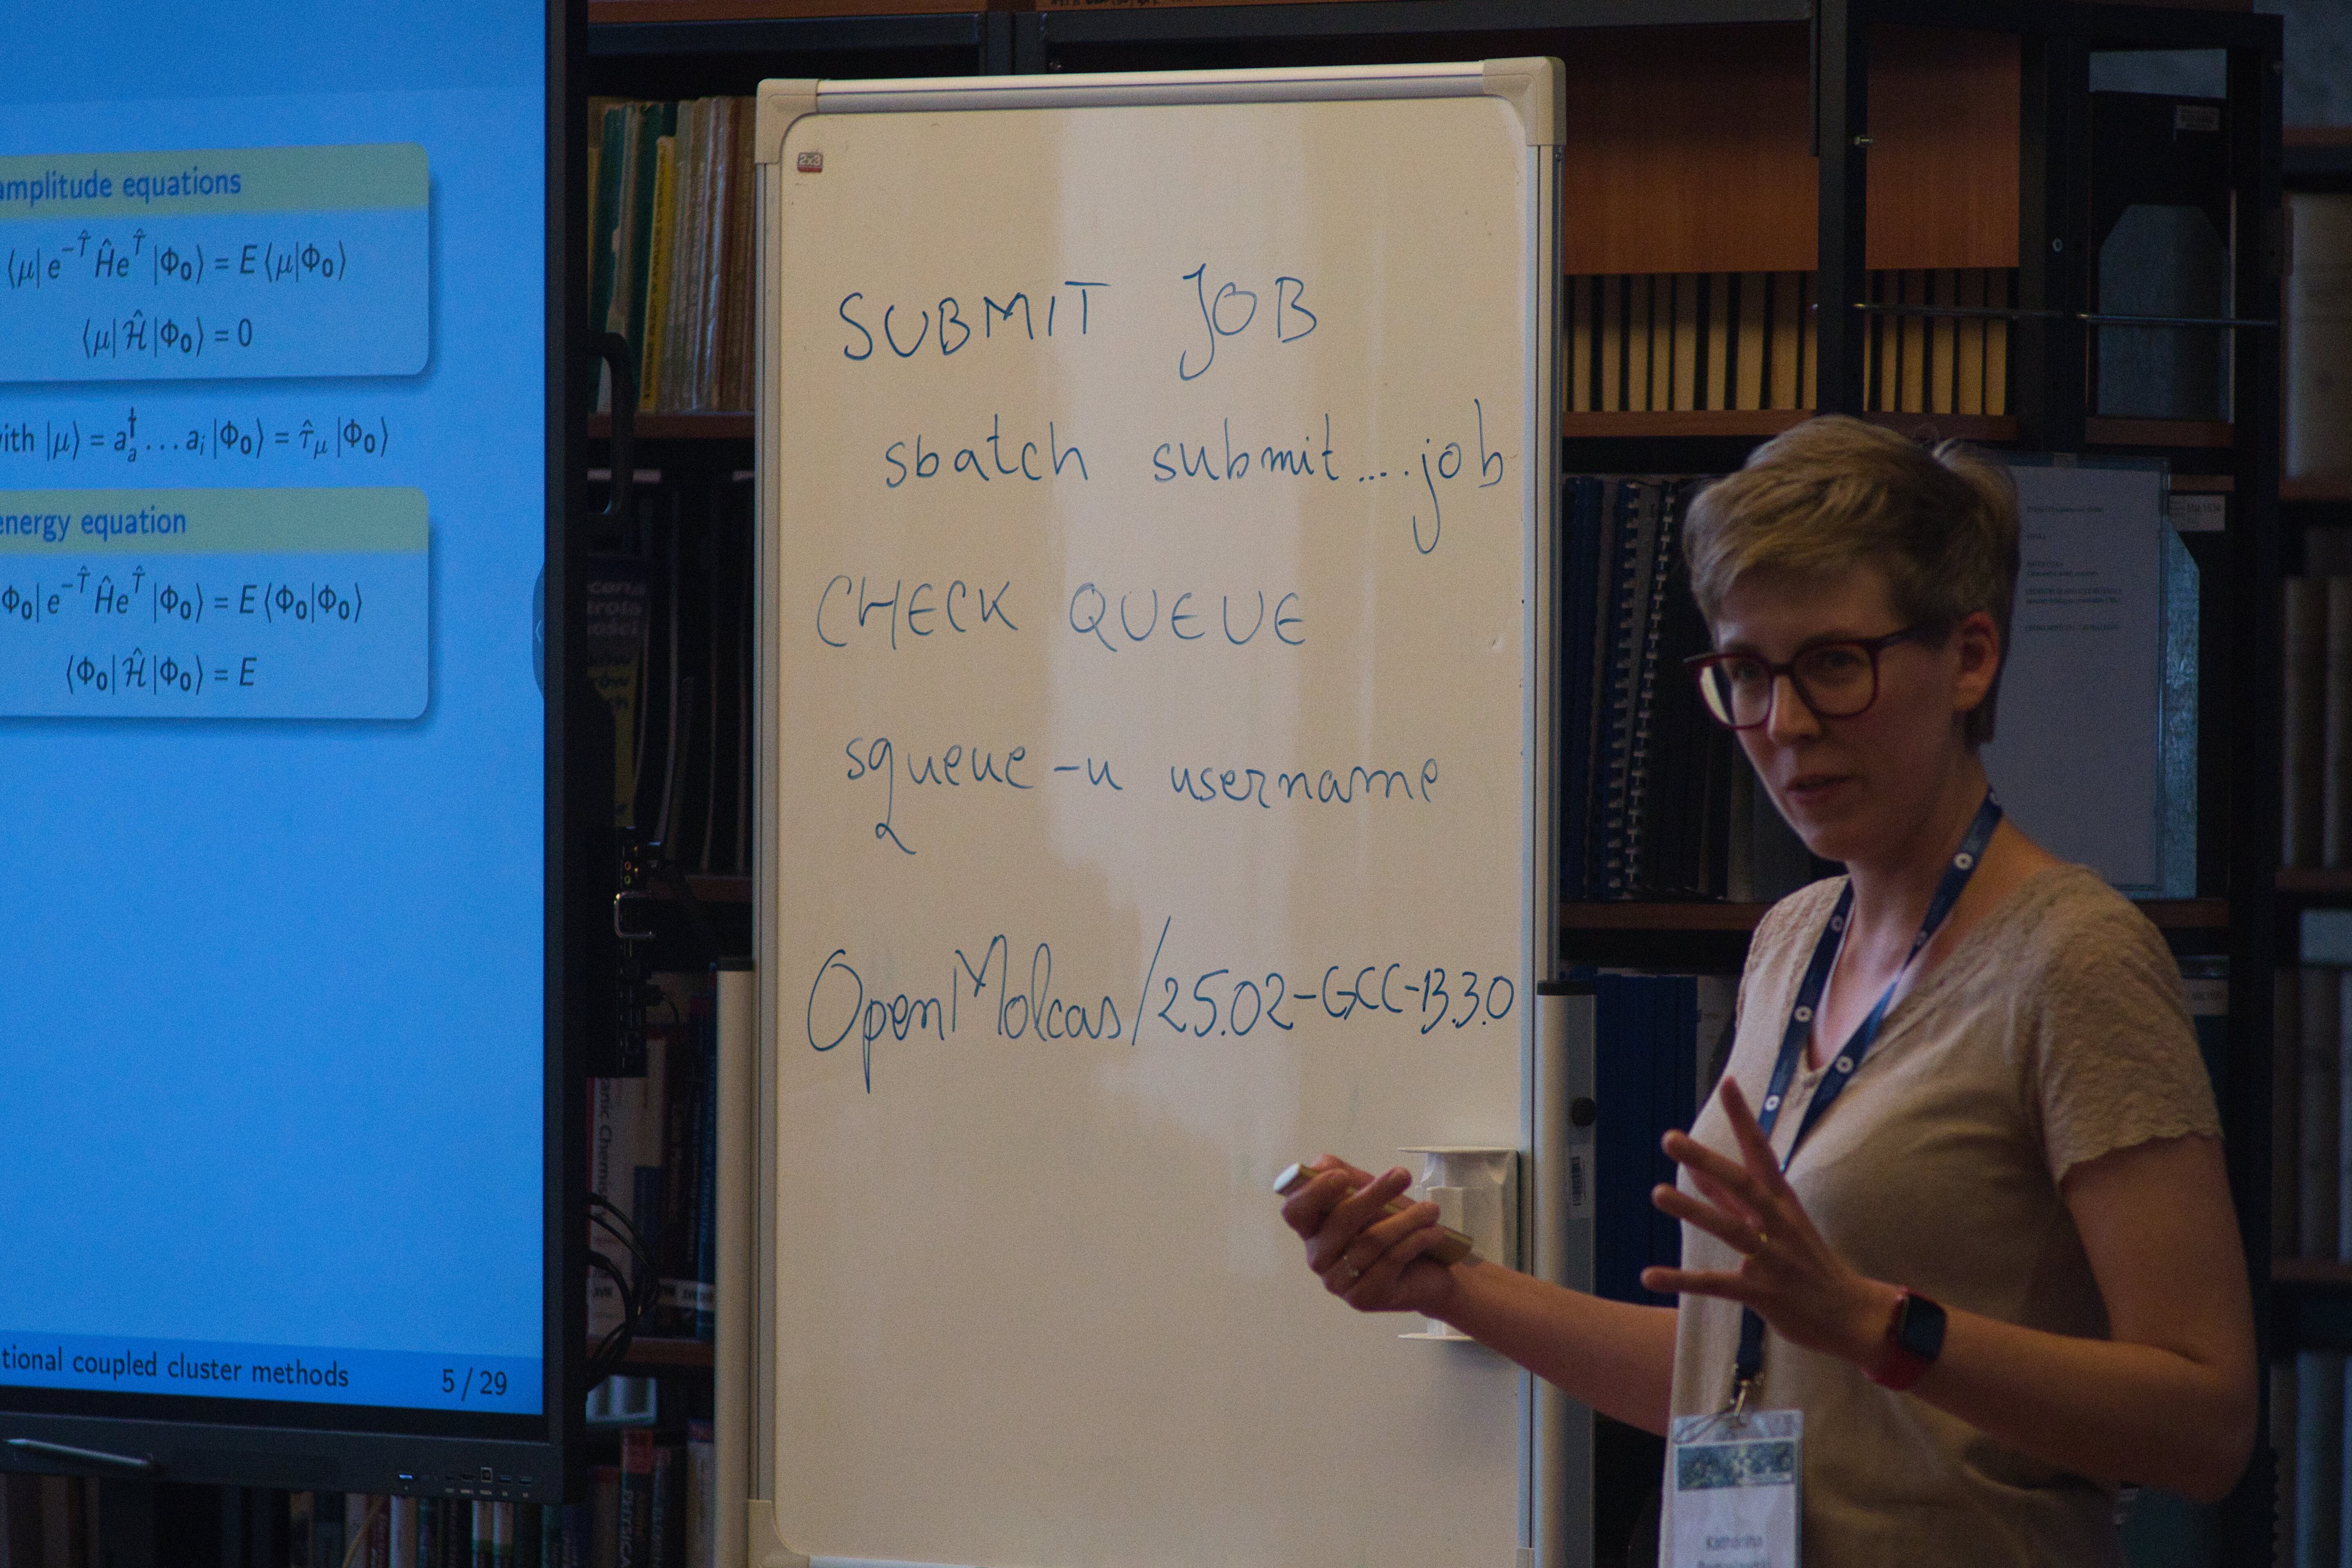 amplitude equations
⟨μ| e^{-T̂} Ĥ e^{T̂} |Φ₀⟩ = E ⟨μ|Φ₀⟩
⟨μ| Ĥ |Φ₀⟩ = 0
with |μ⟩ = a†ₐ ... aᵢ |Φ₀⟩ = τ̂_μ |Φ₀⟩
energy equation
Φ₀| e^{-T̂} Ĥ e^{T̂} |Φ₀⟩ = E ⟨Φ₀|Φ₀⟩
⟨Φ₀| Ĥ |Φ₀⟩ = E
tional coupled cluster methods 5 / 29
2x3
SUBMIT JOB
sbatch submit....job
CHECK QUEUE
squeue -u username
OpenMolcas/25.02-GCC-13.3.0
Katharina